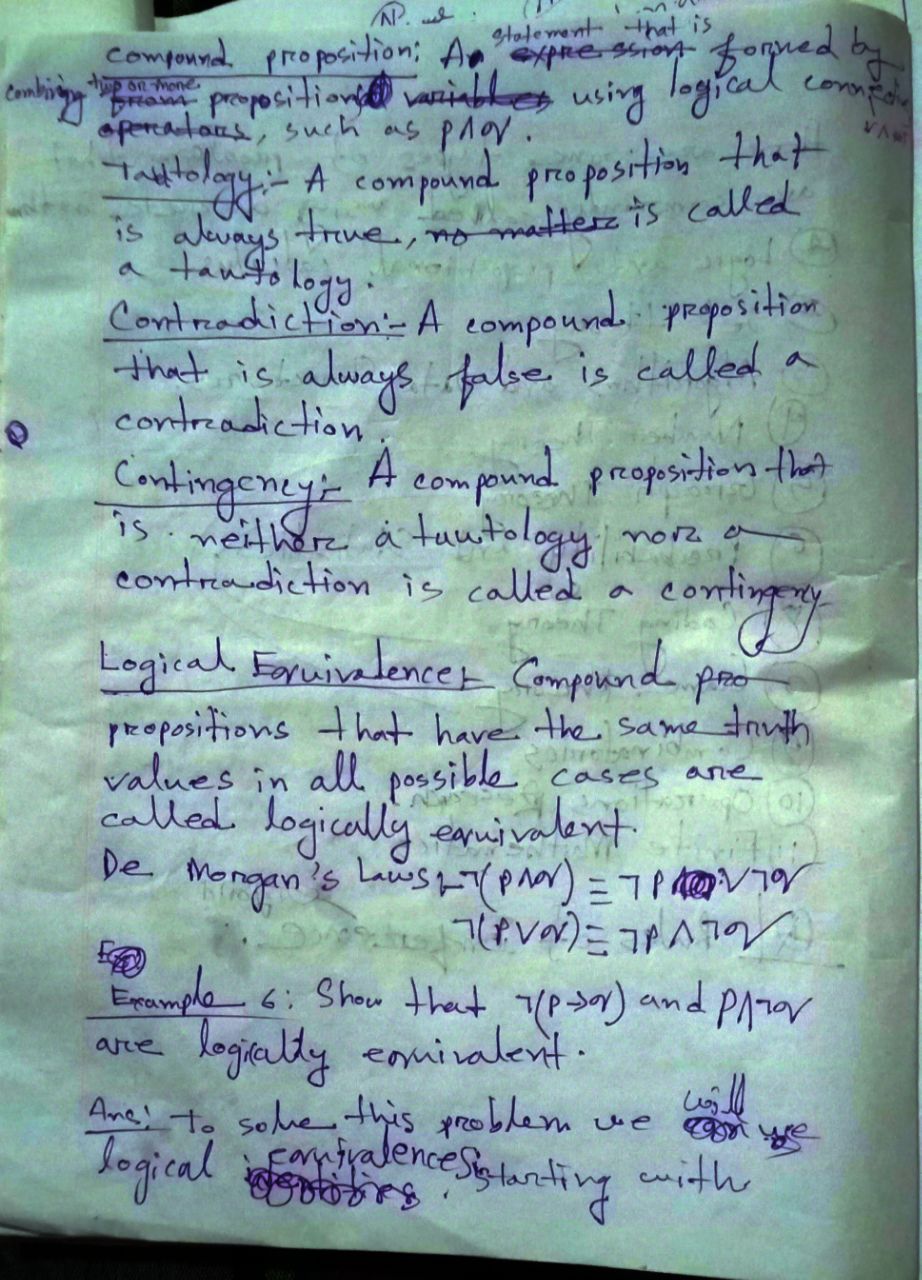 statement that is
compound proposition: A expression formed by
combining two or more from propositions variables using logical connective
operators, such as p∧q.
Tautology:- A compound proposition that
is always true, no matter is called
a tautology.
Contradiction:- A compound proposition
that is always false is called a
contradiction.
Contingency:- A compound proposition that
is neither a tautology nor a
contradiction is called a contingency
Logical Equivalence:- Compound pro
propositions that have the same truth
values in all possible cases are
called logically equivalent.
De Morgan's Laws:- ¬(p∧q) ≡ ¬p∨¬q
¬(p∨q) ≡ ¬p∧¬q
Example 6: Show that ¬(p→q) and p∧¬q
are logically equivalent.
Ans: To solve this problem we will use
logical equivalences. Starting with